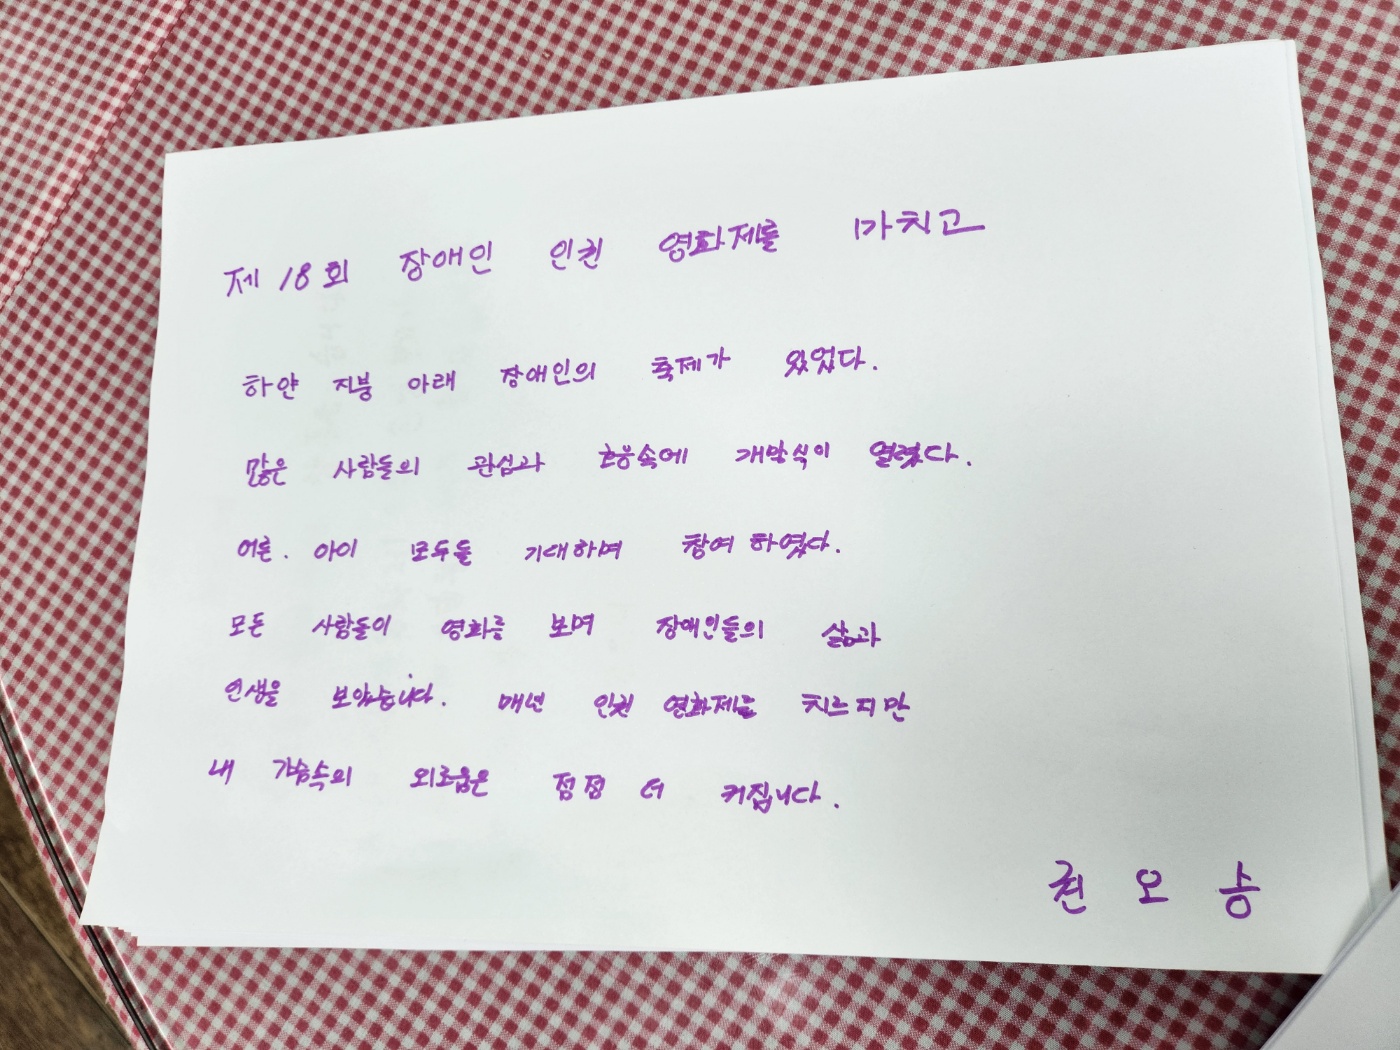 제 18회 장애인 인권 영화제를 마치고
하얀 지붕 아래 장애인의 축제가 있었다.
많은 사람들의 관심과 호응속에 개막식이 열렸다.
어른. 아이 모두들 기대하며 참여 하였다.
모든 사람들이 영화를 보며 장애인들의 삶과
인생을 보았습니다. 매년 인권 영화제를 치르지만
내 가슴속의 외로움은 점점 더 커집니다.
권 오 승